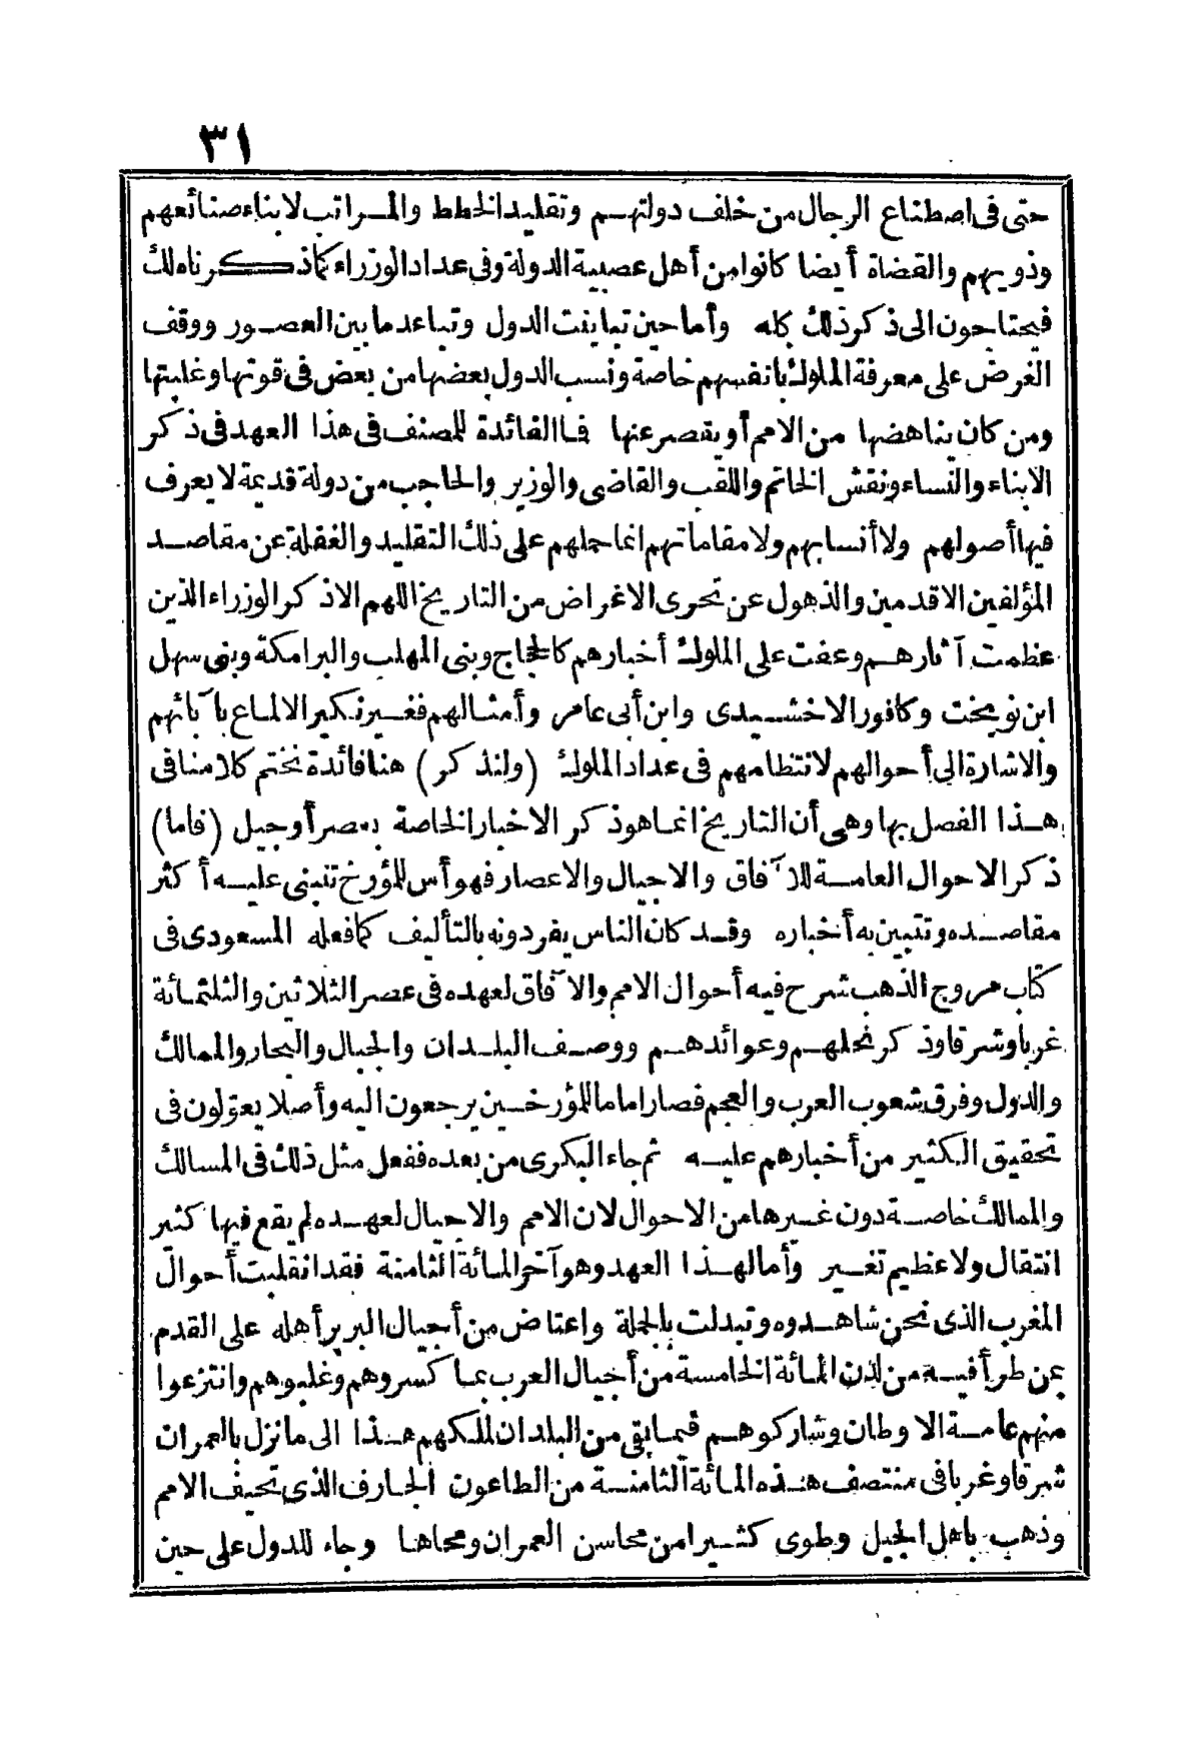 ٣١
حتى فى اصطناع الرجال من خلف دولتهم وتقليد الخطط والمراتب لابناء صنائعهم
وذويهم والقضاة أيضا كانوا من أهل عصبية الدولة وفى عداد الوزراء كما ذكرناه لك
فيحتاجون الى ذكر ذلك كله وأما حين تباينت الدول وتباعد ما بين العصور ووقف
الغرض على معرفة الملوك بانفسهم خاصة ونسب الدول بعضها من بعض فى قوتها وغلبتها
ومن كان يناهضها من الامم أو يقصر عنها فما الفائدة للمصنف فى هذا العهد فى ذكر
الابناء والنساء ونقش الخاتم واللقب والقاضى والوزير والحاجب من دولة قديمة لا يعرف
فيها أصولهم ولا أنسابهم ولا مقاماتهم انما حملهم على ذلك التقليد والغفلة عن مقاصد
المؤلفين الاقدمين والذهول عن تحرى الاغراض من التاريخ اللهم الا ذكر الوزراء الذين
عظمت آثارهم وعفت على الملوك أخبارهم كالحجاج وبنى المهلب والبرامكة وبنى سهل
ابن نوبخت وكافور الاخشيدى وابن أبى عامر وأمثالهم فغير نكير الالماع بآبائهم
والاشارة الى أحوالهم لانتظامهم فى عداد الملوك (ولنذكر) هنا فائدة نختم كلامنا فى
هذا الفصل بها وهى أن التاريخ انما هو ذكر الاخبار الخاصة بعصر أو جيل (فاما)
ذكر الاحوال العامة للآفاق والاجيال والاعصار فهو أس للمؤرخ تنبنى عليه أكثر
مقاصده وتتبين به أخباره وقد كان الناس يفردونه بالتأليف كما فعله المسعودى فى
كتاب مروج الذهب شرح فيه أحوال الامم والآفاق لعهده فى عصر الثلاثين والثلثمائة
غربا وشرقا وذكر نحلهم وعوائدهم ووصف البلدان والجبال والبحار والممالك
والدول وفرق شعوب العرب والعجم فصار اماما للمؤرخين يرجعون اليه وأصلا يعوّلون فى
تحقيق الكثير من أخبارهم عليه ثم جاء البكرى من بعده ففعل مثل ذلك فى المسالك
والممالك خاصة دون غيرها من الاحوال لان الامم والاجيال لعهده لم يقع فيها كثير
انتقال ولا عظيم تغير وأما لهذا العهد وهو آخر المائة الثامنة فقد انقلبت أحوال
المغرب الذى نحن شاهدوه وتبدلت بالجملة واعتاض من أجيال البربر أهله على القدم
بمن طرأ فيه من لدن المائة الخامسة من أجيال العرب بما كسروهم وغلبوهم وانتزعوا
منهم عامة الاوطان وشاركوهم فيما بقى من البلدان لملكهم هذا الى ما نزل بالعمران
شرقا وغربا فى منتصف هذه المائة الثامنة من الطاعون الجارف الذى تحيف الامم
وذهب باهل الجيل وطوى كثيرا من محاسن العمران ومحاها وجاء للدول على حين